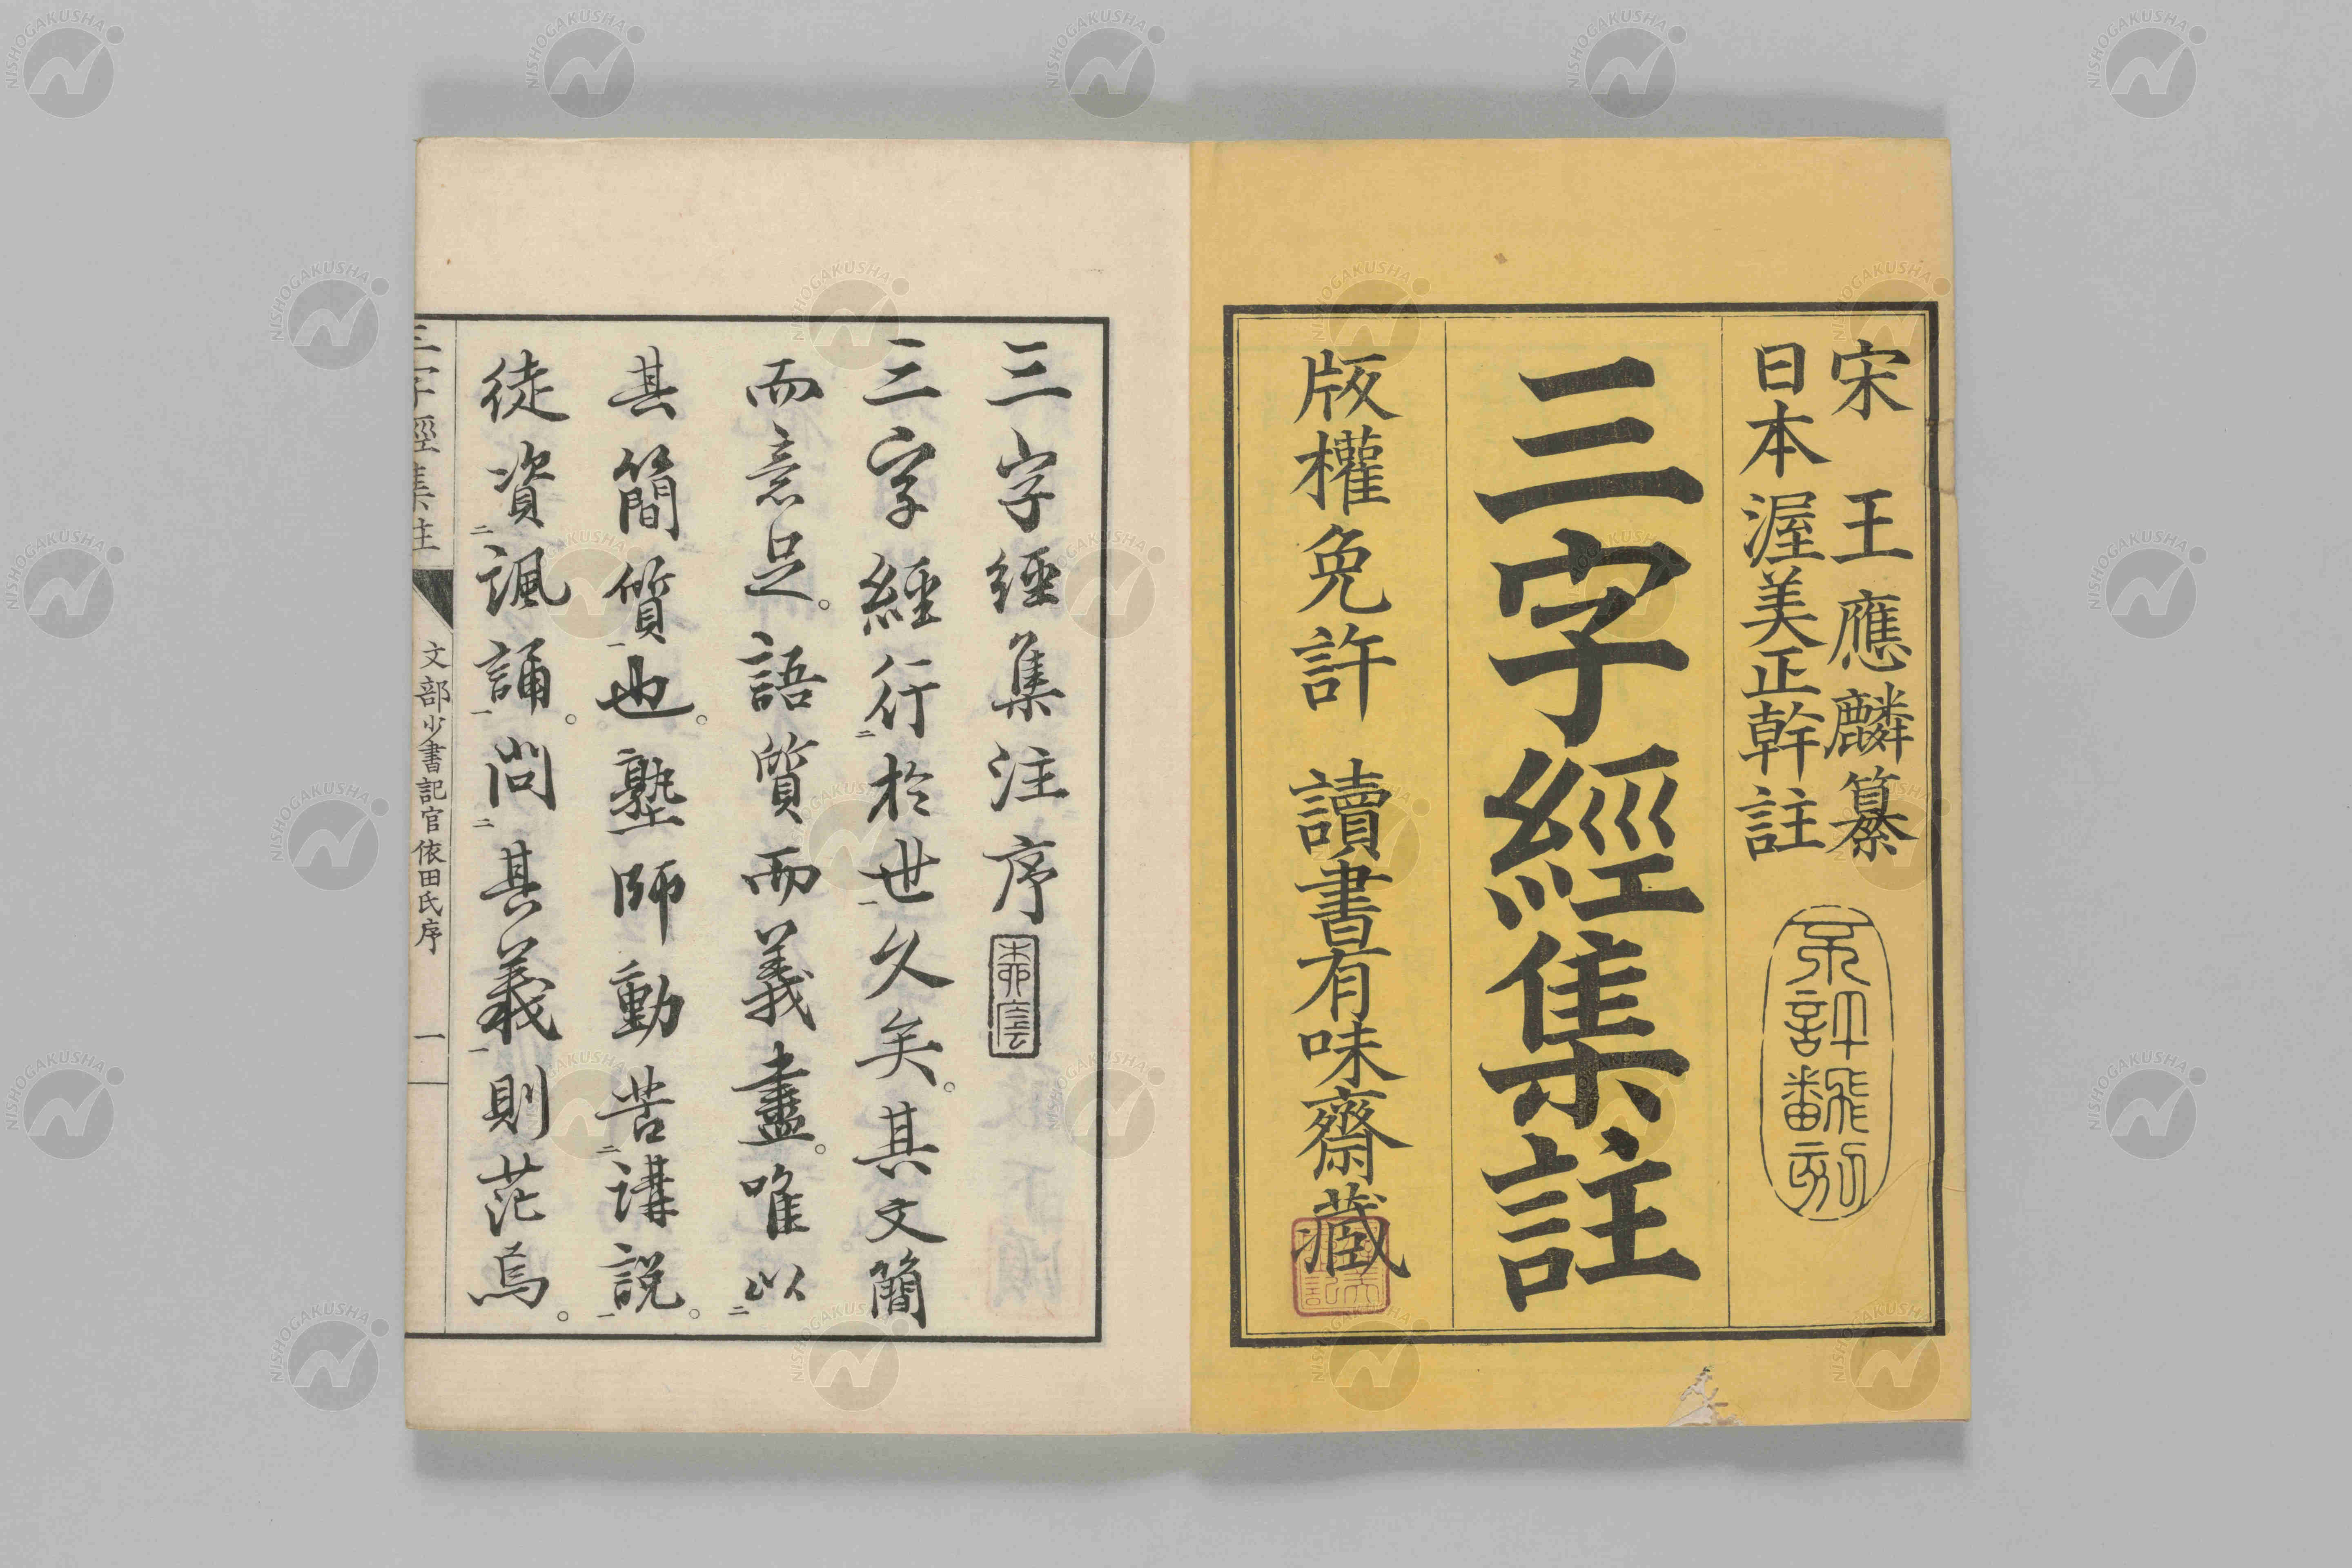 宋 王應麟纂
日本 渥美正幹註
不許翻刻
三字經集註
版權免許 讀書有味齋藏
三字經集注序
三字經行二於世一久矣。其文簡
而意足。語質而義盡。唯以二
其簡質一也。塾師動苦二講説一。
徒資二諷誦一。問二其義一則茫焉。
三字經集註
文部少書記官依田氏序
一
NISHOGAKUSHA